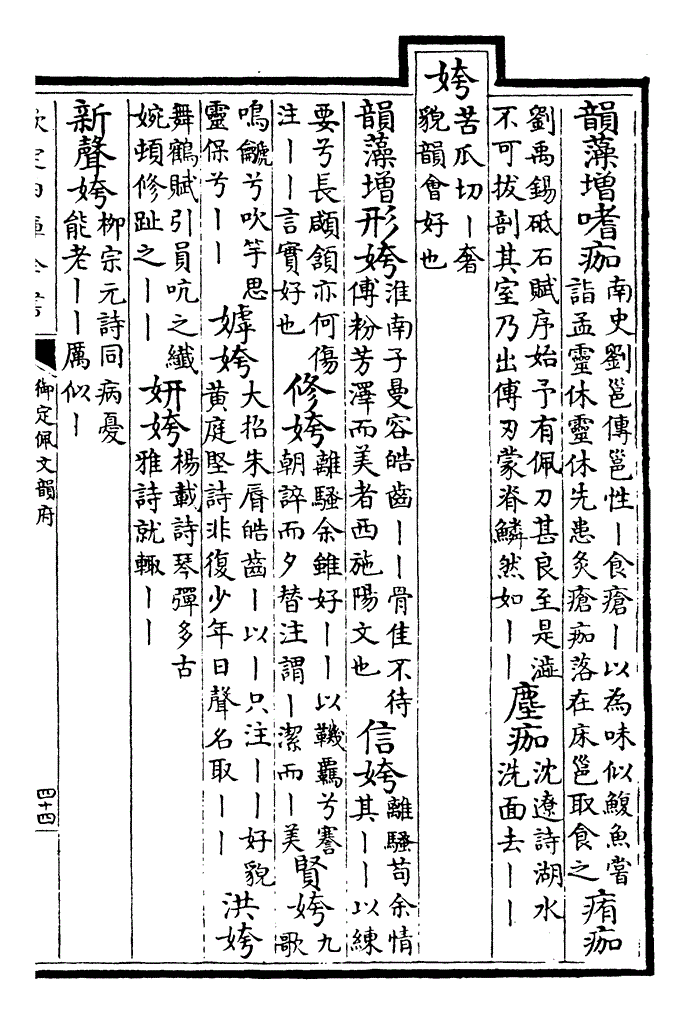 韻藻增嗜痂南史劉邕傳邕性丨食瘡丨以為味似鰒魚嘗
詣孟靈休靈休先患灸瘡痂落在床邕取食之㾪痂
劉禹錫砥石賦序始予有佩刀甚良至是澁
不可拔剖其室乃出傅刃蒙脊鱗然如丨丨塵痂沈遼詩湖水
洗面去丨丨
姱苦瓜切丨奢
貌韻會好也
韻藻增形姱淮南子曼容皓齒丨丨骨佳不待
傅粉芳澤而美者西施陽文也信姱離騷苟余情
其丨丨以練
要兮長顑頷亦何傷
注丨丨言實好也修姱離騷余雖好丨丨以鞿羈兮謇
朝誶而夕替注謂丨潔而丨美賢姱九
歌
鳴龥兮吹竽思
靈保兮丨丨嫭姱大招朱脣皓齒丨以丨只注丨丨好貌
黄庭堅詩非復少年日聲名取丨丨洪姱
舞鶴賦引員吭之纖
婉頓修趾之丨丨妍姱楊載詩琴彈多古
雅詩就輙丨丨
新聲姱柳宗元詩同病憂
能老丨丨厲似丨
欽定四庫全書
御定佩文韻府
四十四